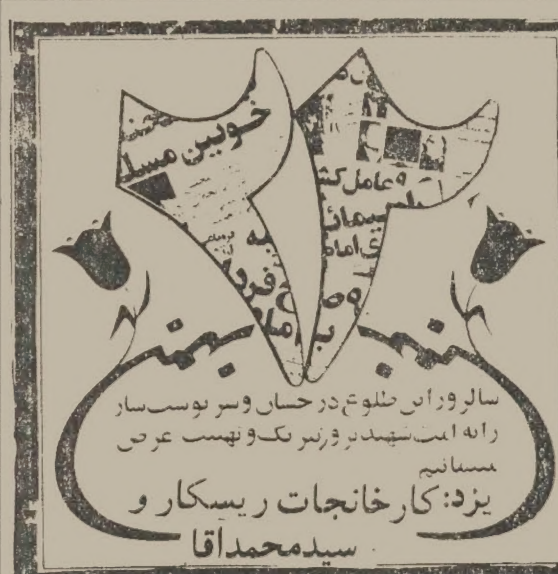 ۲۲
خونین مسلـ
و عامل کشـ
ی امام
به
بهمن
سالروز این طلوع درخشان و سرنوشت ساز
را به امت شهیدپرور تبریک و تهنیت عرض
مینمائیم
یزد: کارخانجات ریسکار و
سیدمحمدآقا